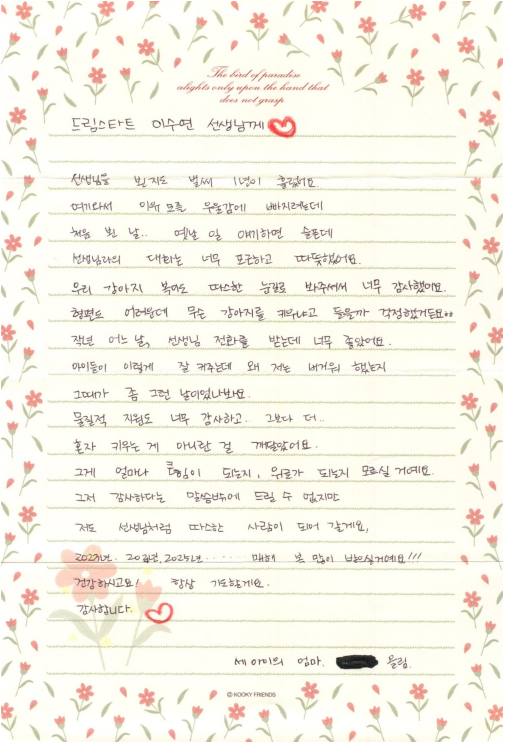 The bird of paradise
alights only upon the hand that
does not grasp
드림스타트 이수연 선생님께
선생님을 뵌지도 벌써 1년이 흘렀네요.
여기와서 이유 모를 우울감에 빠지려던데
처음 뵌 날.. 옛날 일 얘기하면 슬픈데
선생님과의 대화는 너무 포근하고 따뜻했어요.
우리 강아지 복이도 따스한 눈길로 봐주셔서 너무 감사했어요.
형편도 어려운데 무슨 강아지를 키우냐고 들을까 걱정했거든요..
작년 어느 날, 선생님 전화를 받는데 너무 좋았어요.
아이들이 이렇게 잘 커주는데 왜 저는 버거워 했는지
그때가 좀 그런 날이었나봐요.
물질적 지원도 너무 감사하고. 그보다 더..
혼자 키우는 게 아니란 걸 깨달았어요.
그게 얼마나 큰힘이 되는지, 위로가 되는지 모르실 거예요.
그저 감사하다는 말씀밖에 드릴 수 없지만
저도 선생님처럼 따스한 사람이 되어 갈게요,
2023년. 2024년. 2025년...... 매해 복 많이 받으실거예요!!!
건강하시고요! 항상 기도할게요.
감사합니다.
세 아이의 엄마. 올림.
© KOOKY FRIENDS